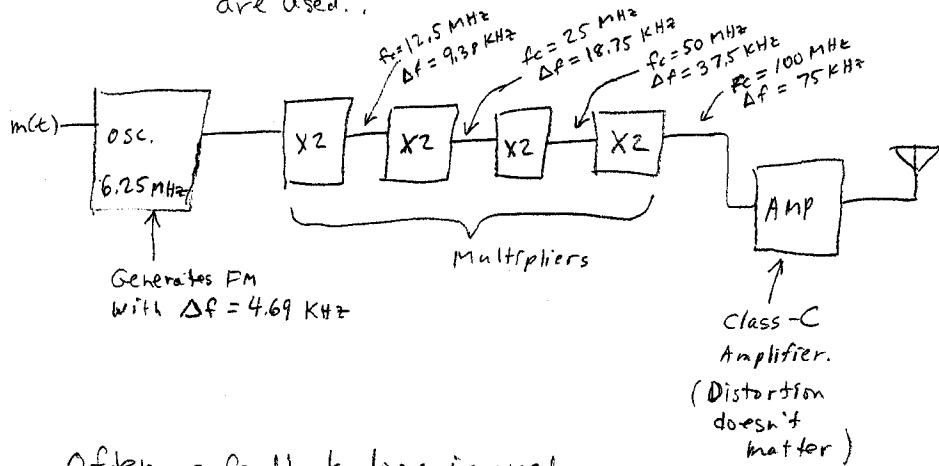 are used..
fc=12.5 MHz
Δf = 9.38 KHz
fc = 25 MHz
Δf = 18.75 KHz
fc = 50 MHz
Δf = 37.5 KHz
fc = 100 MHz
Δf = 75 KHz
m(t)
osc.
6.25 MHz
X2
X2
X2
X2
AMP
Multipliers
Generates FM
with Δf = 4.69 KHz
Class-C
Amplifier.
(Distortion
doesn't
matter)